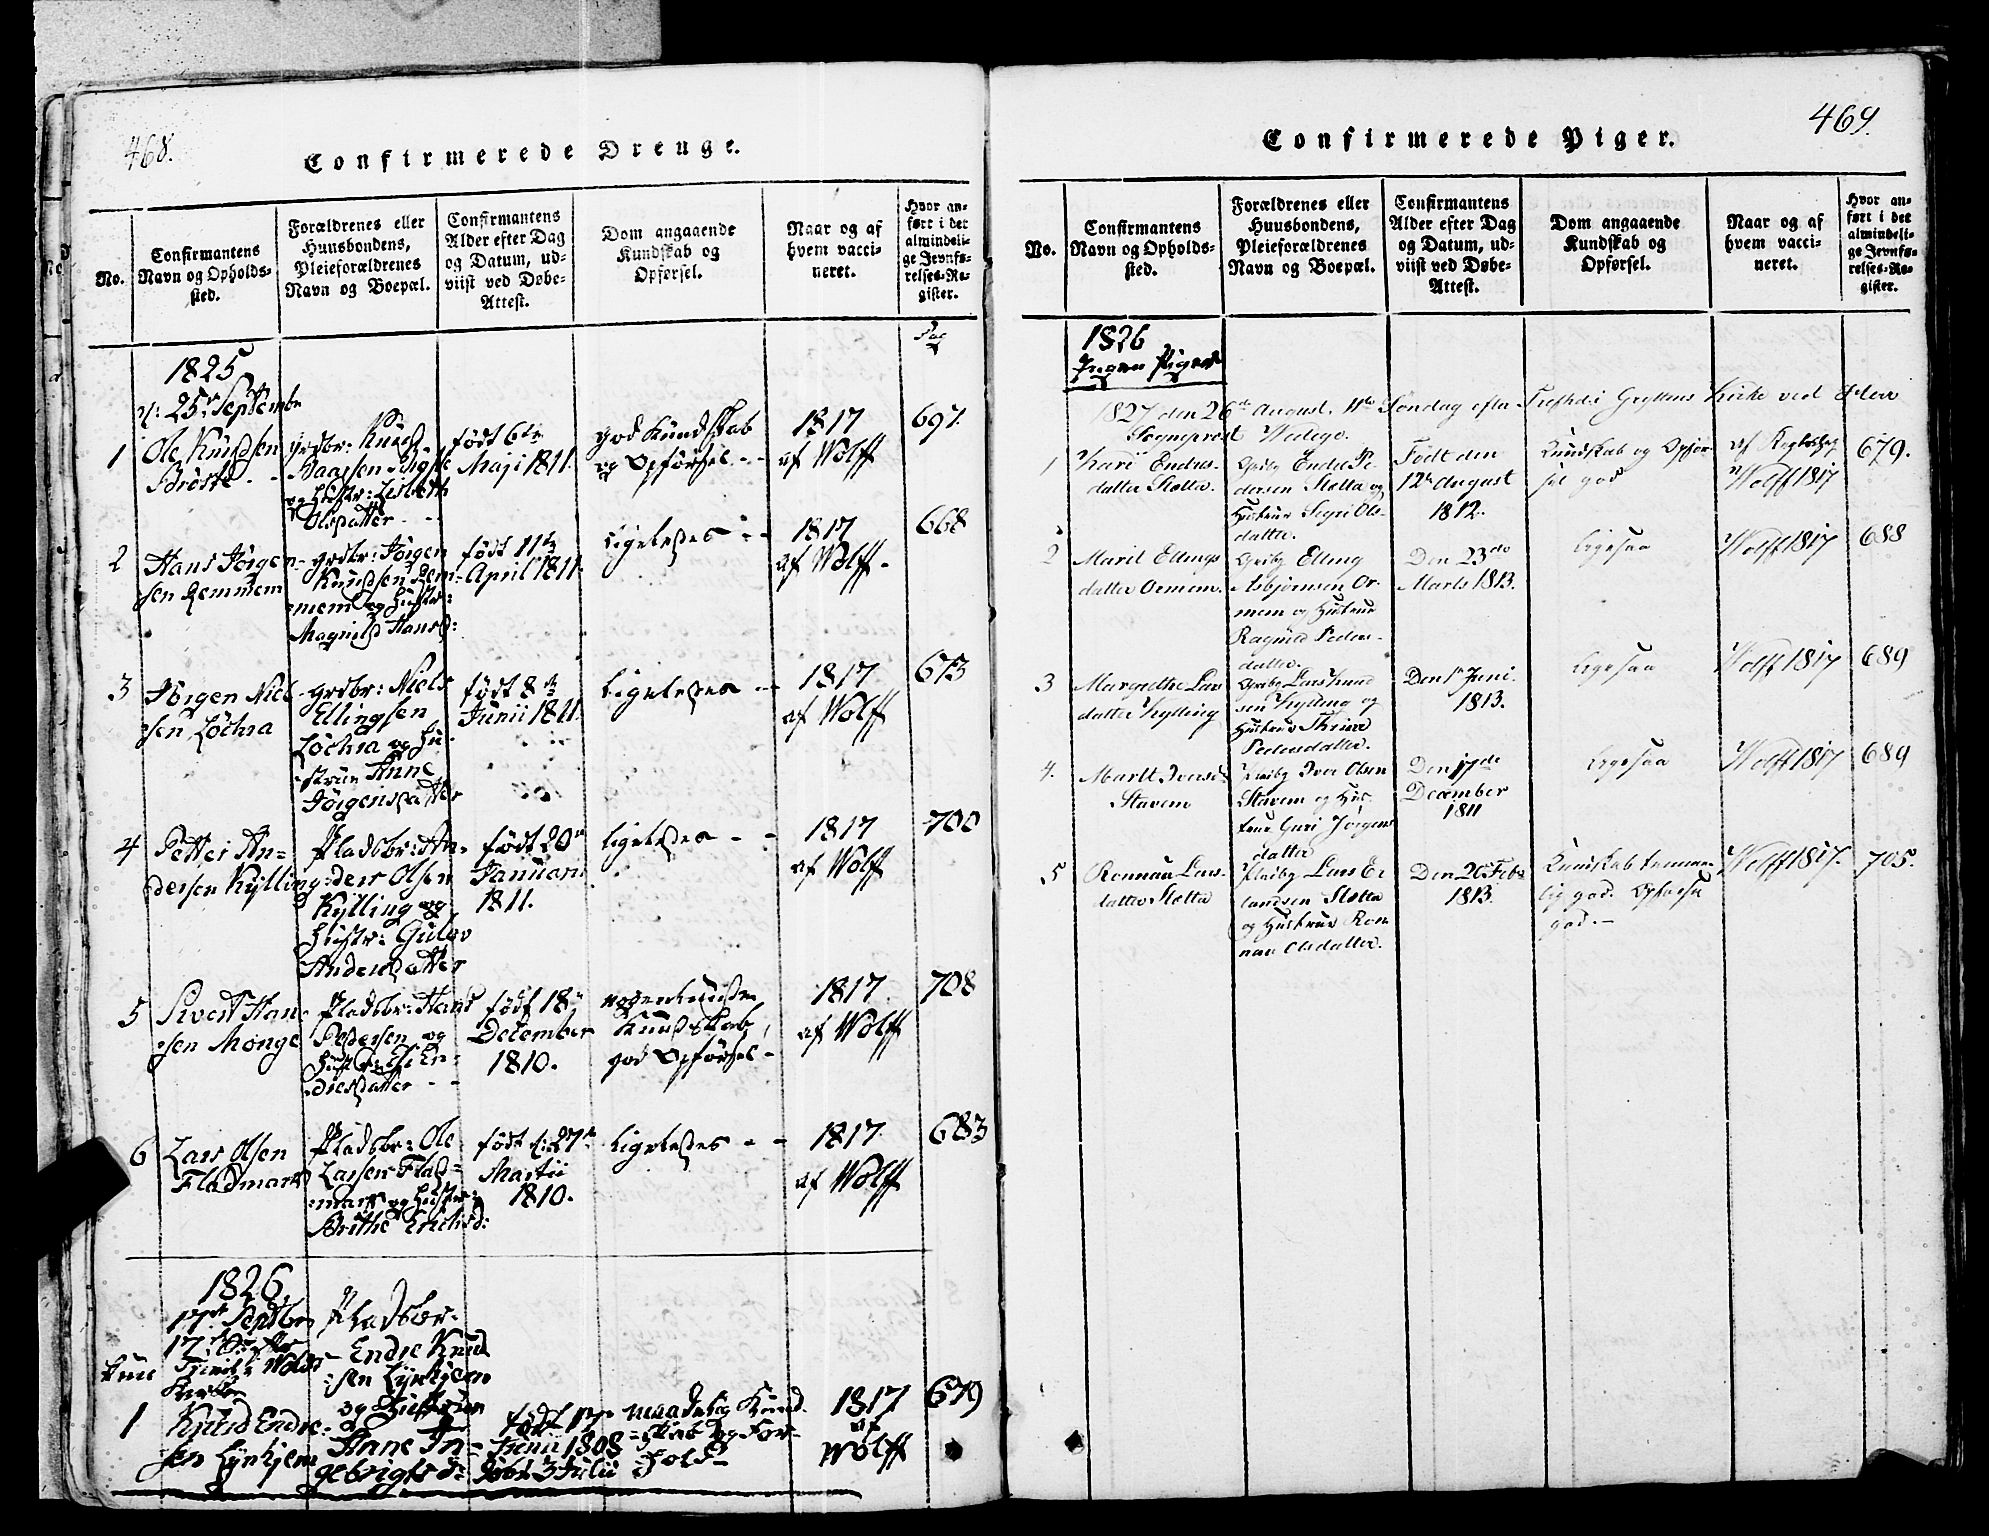 468.
Confirmerede Drenge.
No.
Confirmantens
Navn og Opholds-
sted.
Forældrenes eller
Huusbondens,
Pleieforældrenes
Navn og Boepæl.
Confirmantens
Alder efter Dag
og Datum, ud-
viist ved Døbe-
Attest.
Dom angaaende
Kundskab og
Opførsel.
Naar og af
hvem vacci-
neret.
Hvor an-
ført i det
almindeli-
ge Jevnfø-
relses-Re-
gister.
Pag
1825
25de Septembr
1
Ole Knudsen
Brøste
grdbr: Knud
og Hustr: Lisbeth
Olsdatter
født 6te
Maji 1811.
god Kundskab
og Opførsel
1817
af Wolff
697.
2
Hans Jørgen-
sen Remmem
grdbr: Jørgen
Knudsen Rem-
mem og Hustr:
Magnild Hansd:
født 11te
April 1811.
Ligeledes
1817
af Wolff
668
3
Jørgen Niel-
sen Løchra
grdbr: Niels
Ellingsen
Løchra og Hu-
strue Anne
Jørgensdatter
født 8de
Junii 1811.
Ligeledes
1817
af Wolff
673
4
Petter An-
dersen Kylling
Pladsbr: An-
ders Olsen
Kylling og
Hustr: Gulov
Andersdatter
født 20de
Januari
1811.
Ligeledes
1817
af Wolff
700
5
Sivert Han-
sen Monge
Pladsbr: Hans
Pedersen og
født 18de
December
1810.
Kundskab,
god Opførsel
1817
af Wolff
708
6
Lars Olsen
Fladmark
Pladsbr: Ole
Larsen Flad-
mark og Hustr:
Brithe Erichsd:
født d: 27de
Martii
1810.
Ligeledes
1817
af Wolff
683
1826
17de Septbr
1
Knud Endre-
sen Lynhjem
Pladsbr.
Endre Knud-
sen Lynhjem
og Hustrue
Anne In-
gebrigtsd:
født
Junii 1808
døbt 3 Julii
maadelig Kund-
skab og For-
hold
1817
af
Wolff
679
469.
Confirmerede Piger.
No.
Confirmantens
Navn og Opholds-
sted.
Forældrenes eller
Huusbondens,
Pleieforældrenes
Navn og Boepæl.
Confirmantens
Alder efter Dag
og Datum, ud-
viist ved Døbe-
Attest.
Dom angaaende
Kundskab og
Opførsel.
Naar og af
hvem vacci-
neret.
Hvor an-
ført i det
almindeli-
ge Jevnfø-
relses-Re-
gister.
1826
Ingen Piger
1827 den 26de August, 11te Søndag efter Trefhdi Gryttens Kirke ved
Sogneprest
1
Kari Endres-
datter Sletta.
Grbg Endre Pe-
dersen Sletta og
Hustrue Sigri Ols-
datter.
Født den
12te August
1812.
Kundskab og Opfør-
sel god
af
Wolff 1817
679.
2
Marit Ellings
datter Ormem.
Grbg Elling
Asbjørnsen Or-
mem og Hustrue
Ragnild Peders-
datter.
Den 23de
Marts 1813.
Ligesaa
Wolff 1817
688
3
Margrethe Lars
datter Kylling
Grbg Lars Knud
sen Kylling og
Hustrue
Pedersdatter.
Den 1te Juni
1813.
Ligesaa
Wolff 1817
689
4.
Marit Iversd
Stavem
Pladsbg Iver Olsen
Stavem og Hus-
true Guri Jørgens
datter
Den 17de
December
1811
Ligesaa
Wolff 1817
689
5
Ronnau Lars-
datter Sletta
Pladsbg Lars Er
landsen Sletta
og Hustrue Ron-
nau Olsdatter.
Den 20 Febr
1813.
Kundskab temme-
lig god. Opførsel
god.
Wolff 1817.
705.